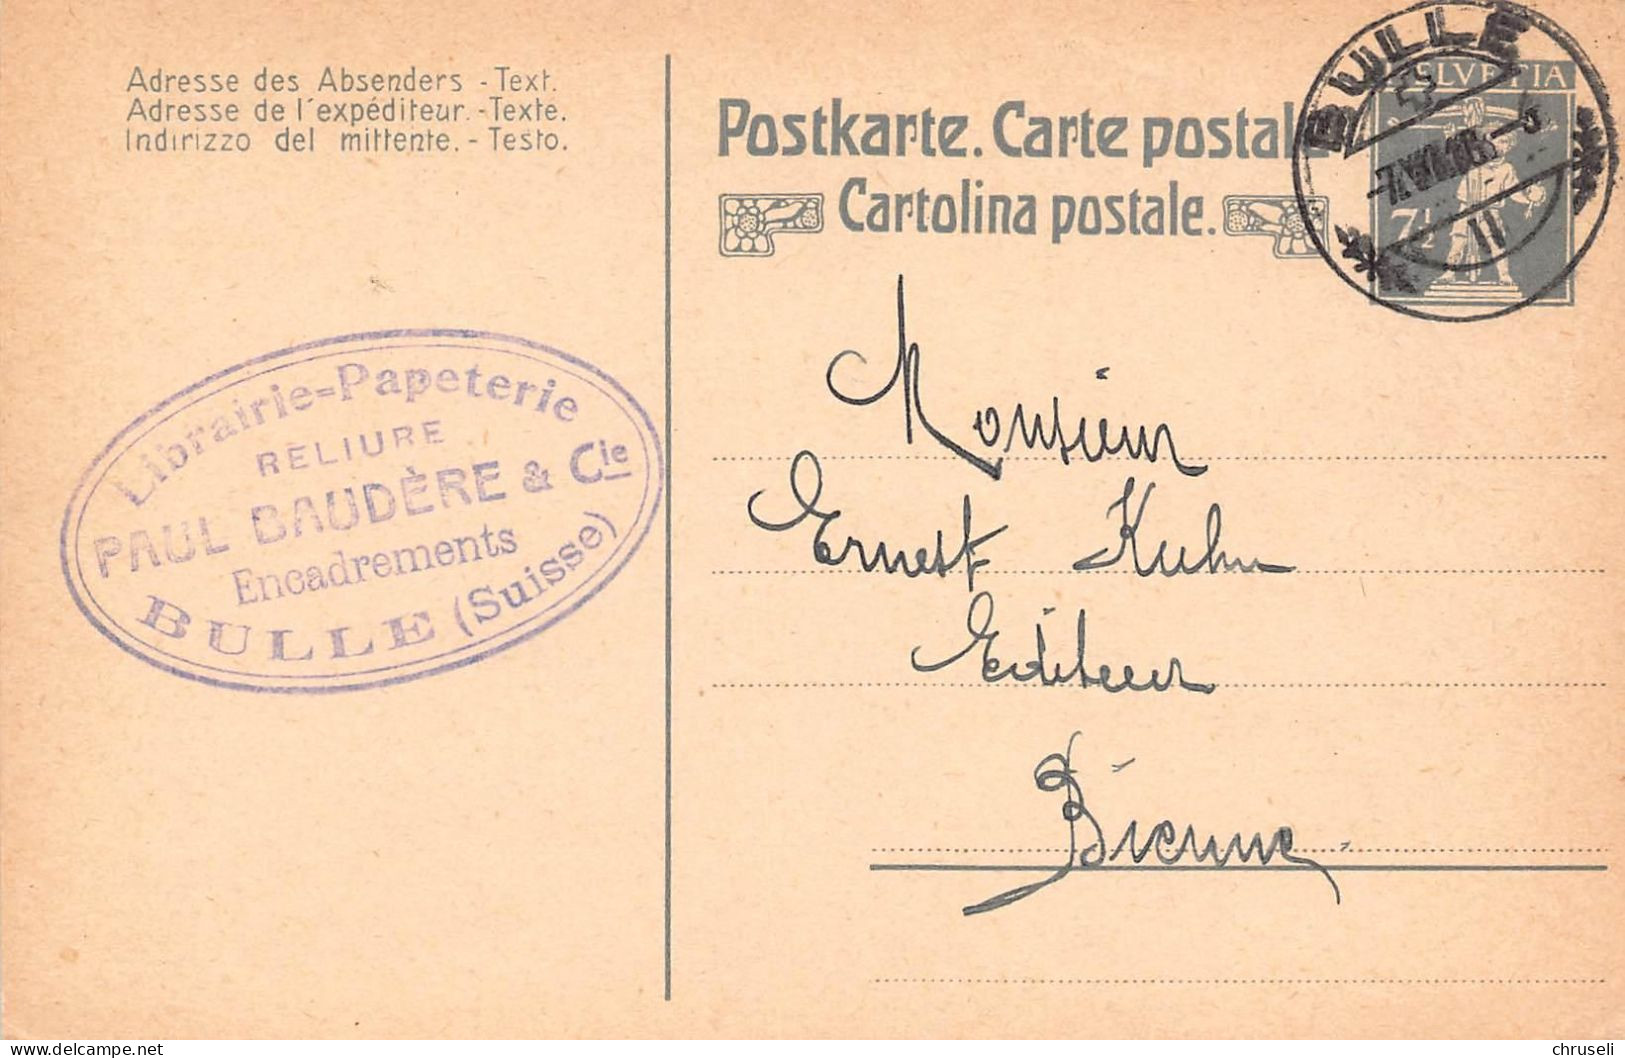 Adresse des Absenders - Text.
Adresse de l'expéditeur. - Texte.
Indirizzo del mittente. - Testo.
Postkarte. Carte postale
Cartolina postale.
BULLE
HELVETIA
7½
Librairie-Papeterie
RELIURE
PAUL BAUDÈRE & Cie
Encadrements
BULLE (Suisse)
Monsieur
Ernest Kuhn
Editeur
Bienne
delcampe.net
chruseli